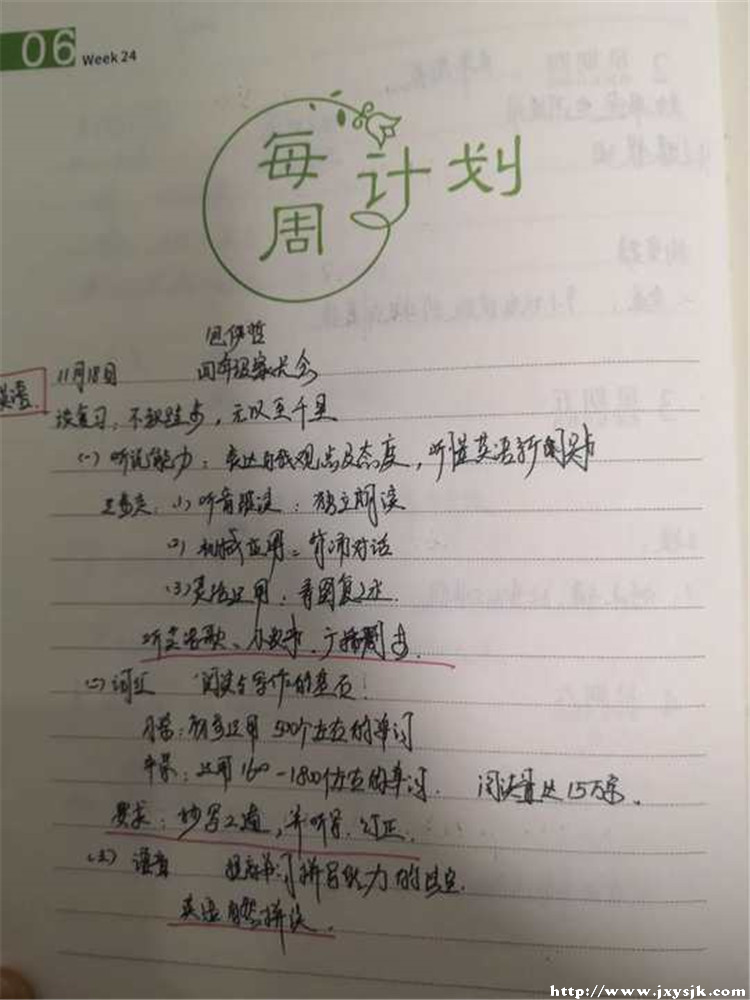 06 Week 24
每周计划
包伊哲
11月18日 四年级家长会
英语
读复习，不积跬步，无以至千里
(一) 听说能力：表达自我观点及态度，听懂英语新闻
(1) 听音跟读：独立朗读
(2) 机械应用：背诵对话
(3) 英语运用：看图复述
听英语歌、小故事、广播剧
(二) 词汇 阅读与写作的基石！
小学：初步运用 500个左右的单词
中学：运用1600-1800个左右的单词. 阅读量达15万字.
要求：抄写2遍，并听写、订正.
(三) 语音 提高单词拼写能力的
英语自然拼读.
http://www.jxysjk.com